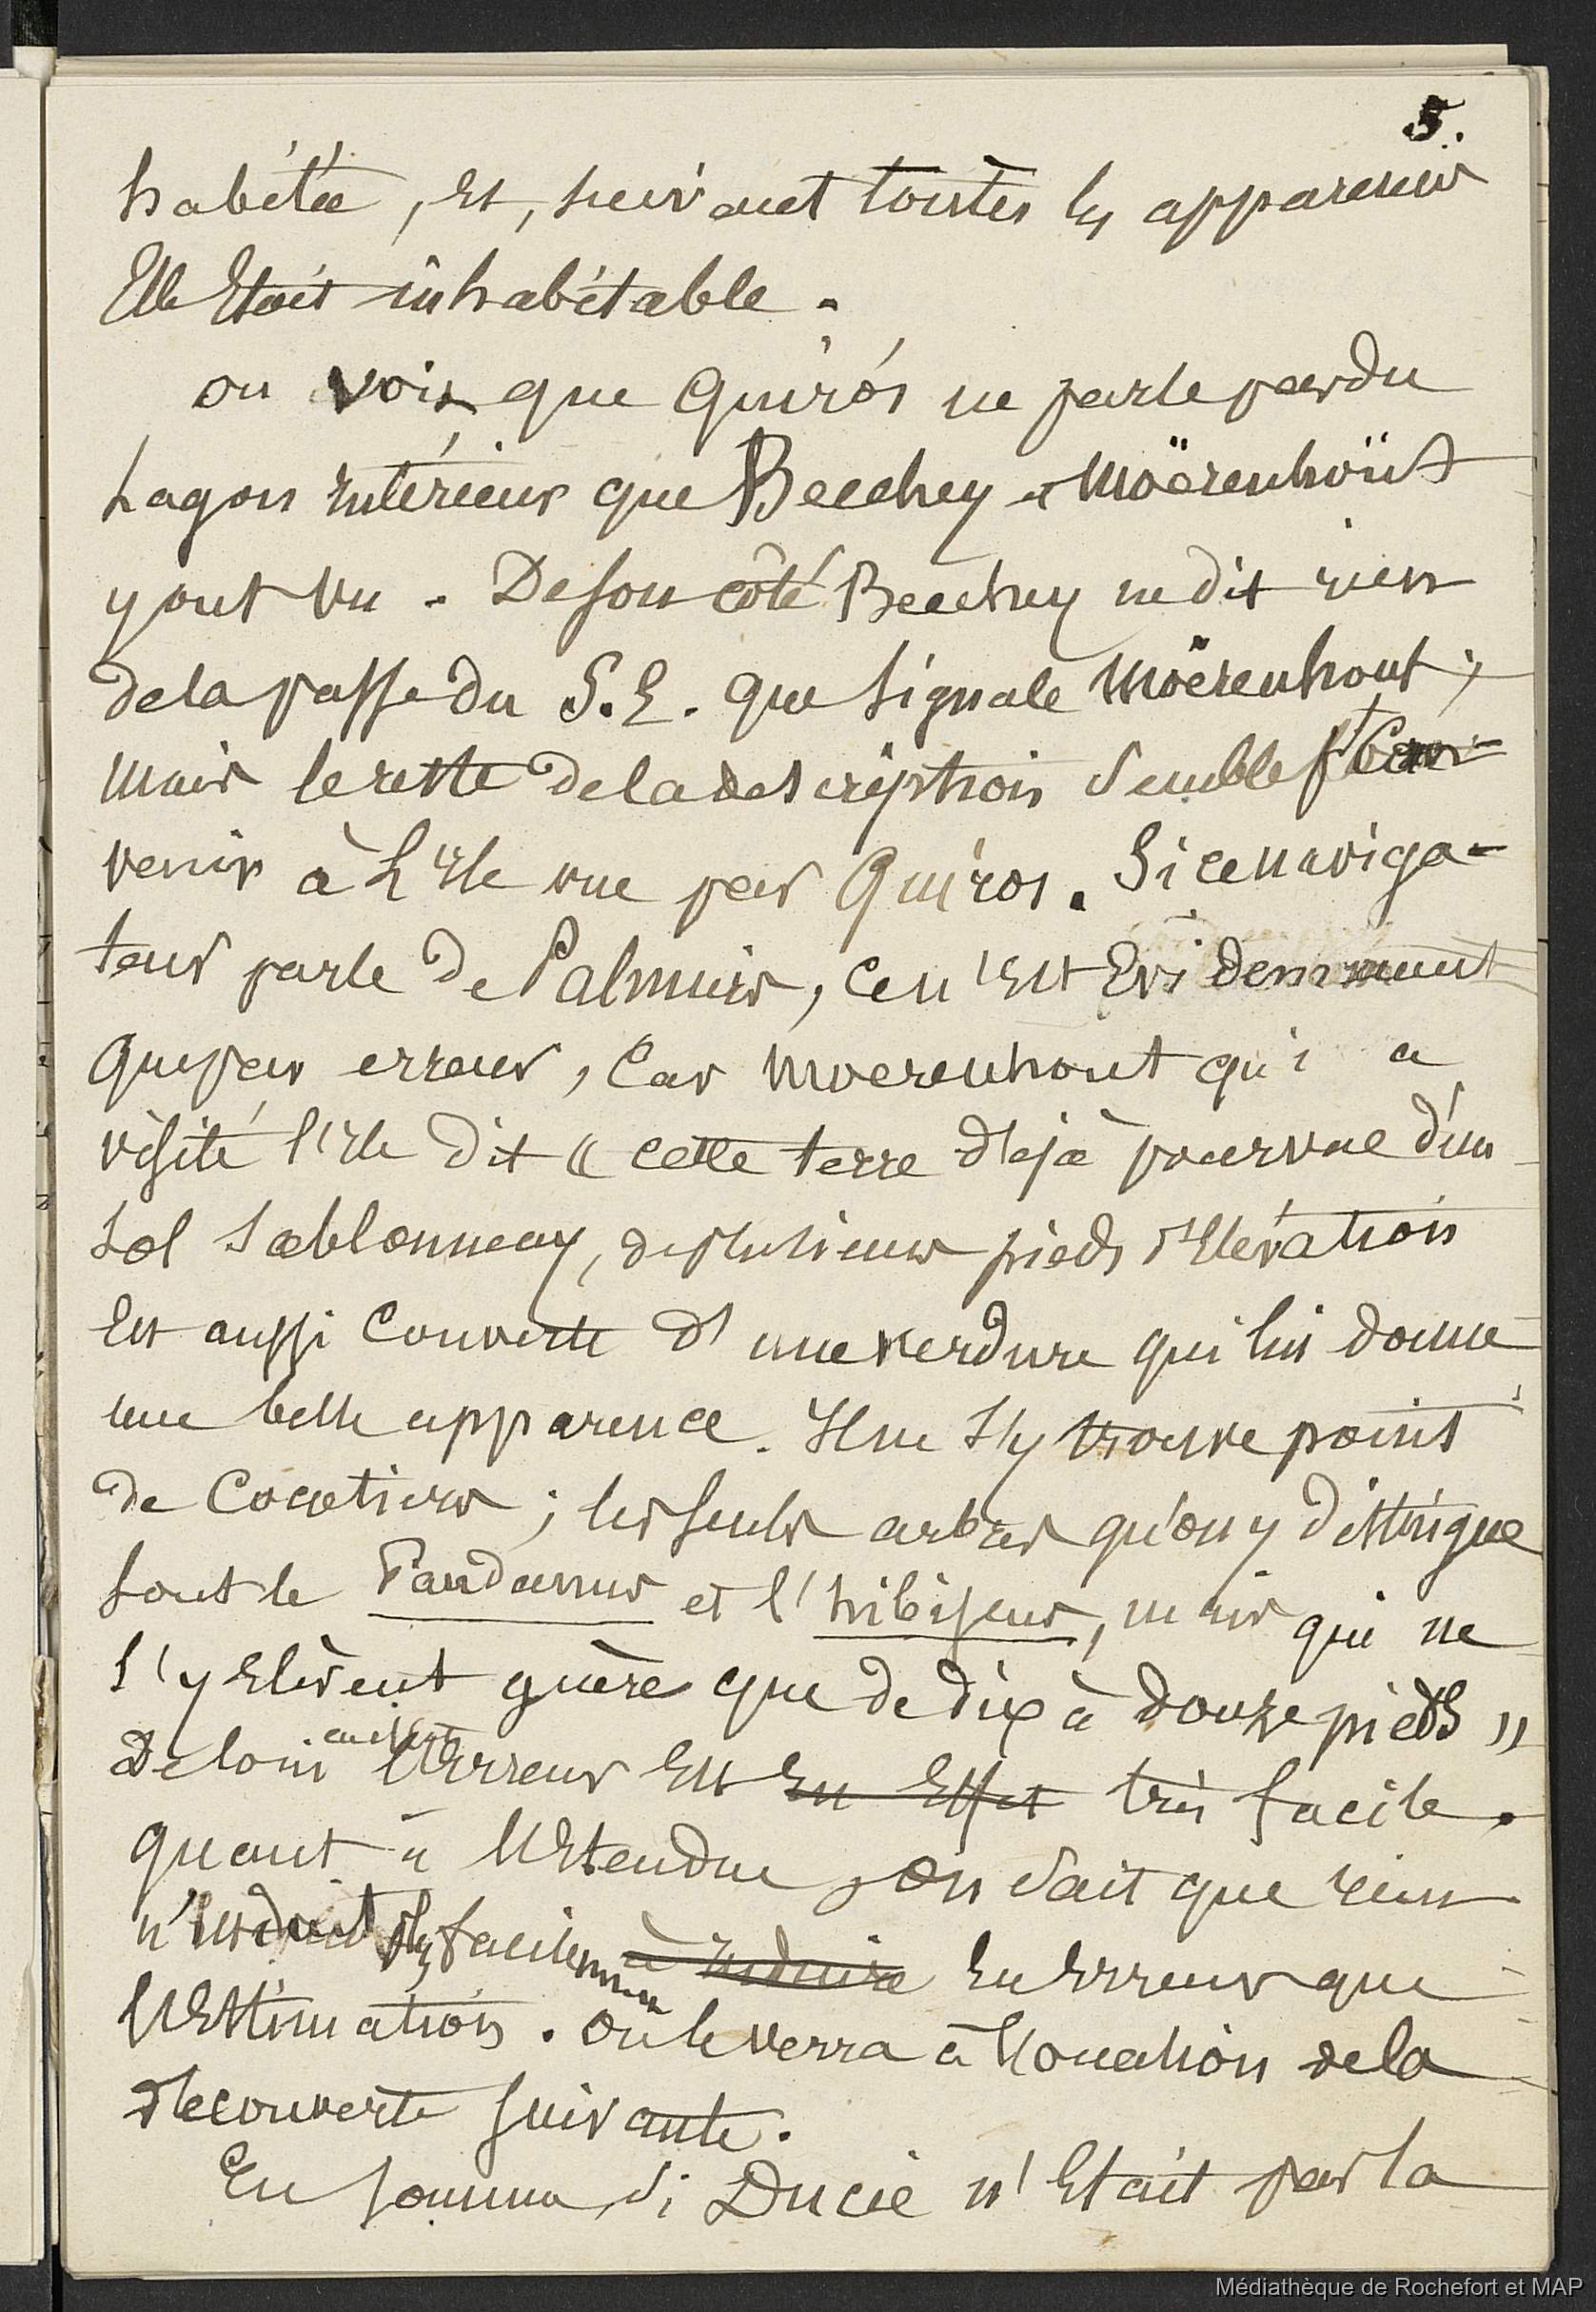 5.
habitée, et, suivant toutes les apparences
Elle était inhabitable.
on voit que Quirós ne parle pas du
Lagon intérieur que Beechey et Möerenhoüt
y ont vu. De son côté Beechey ne dit rien
de la passe du S.E. que signale Möerenhout;
Mais le reste de la description semble s't Con-
venir à L'Ile vue par Quiros. Si ce naviga-
teur parle de Palmiers, ce n'est Evidemment
que par erreur, Car Moerenhout qui a
visité l'Ile dit « cette terre déjà pourvue d'un
Sol sablonneux, de plusieurs pieds d'Elévation
Est aussi Couverte d'une verdure qui lui donne
une belle apparence. Il ne s'y trouve point
de Cocotiers; les seuls arbres qu'on y distingue
sont le Pandanus et l'hibiscus, mais qui ne
s'y elèvent guère que de dix à douze pieds »
De loin en effet l'Erreur est en Effet très facile.
quant à l'Etendue, on sait que rien
n'induit plus facilement à induire en Erreur que
l'Estimation. on le verra à l'occasion de la
découverte suivante.
En somme, si Ducie n'Etait pas la
Médiathèque de Rochefort et MAP